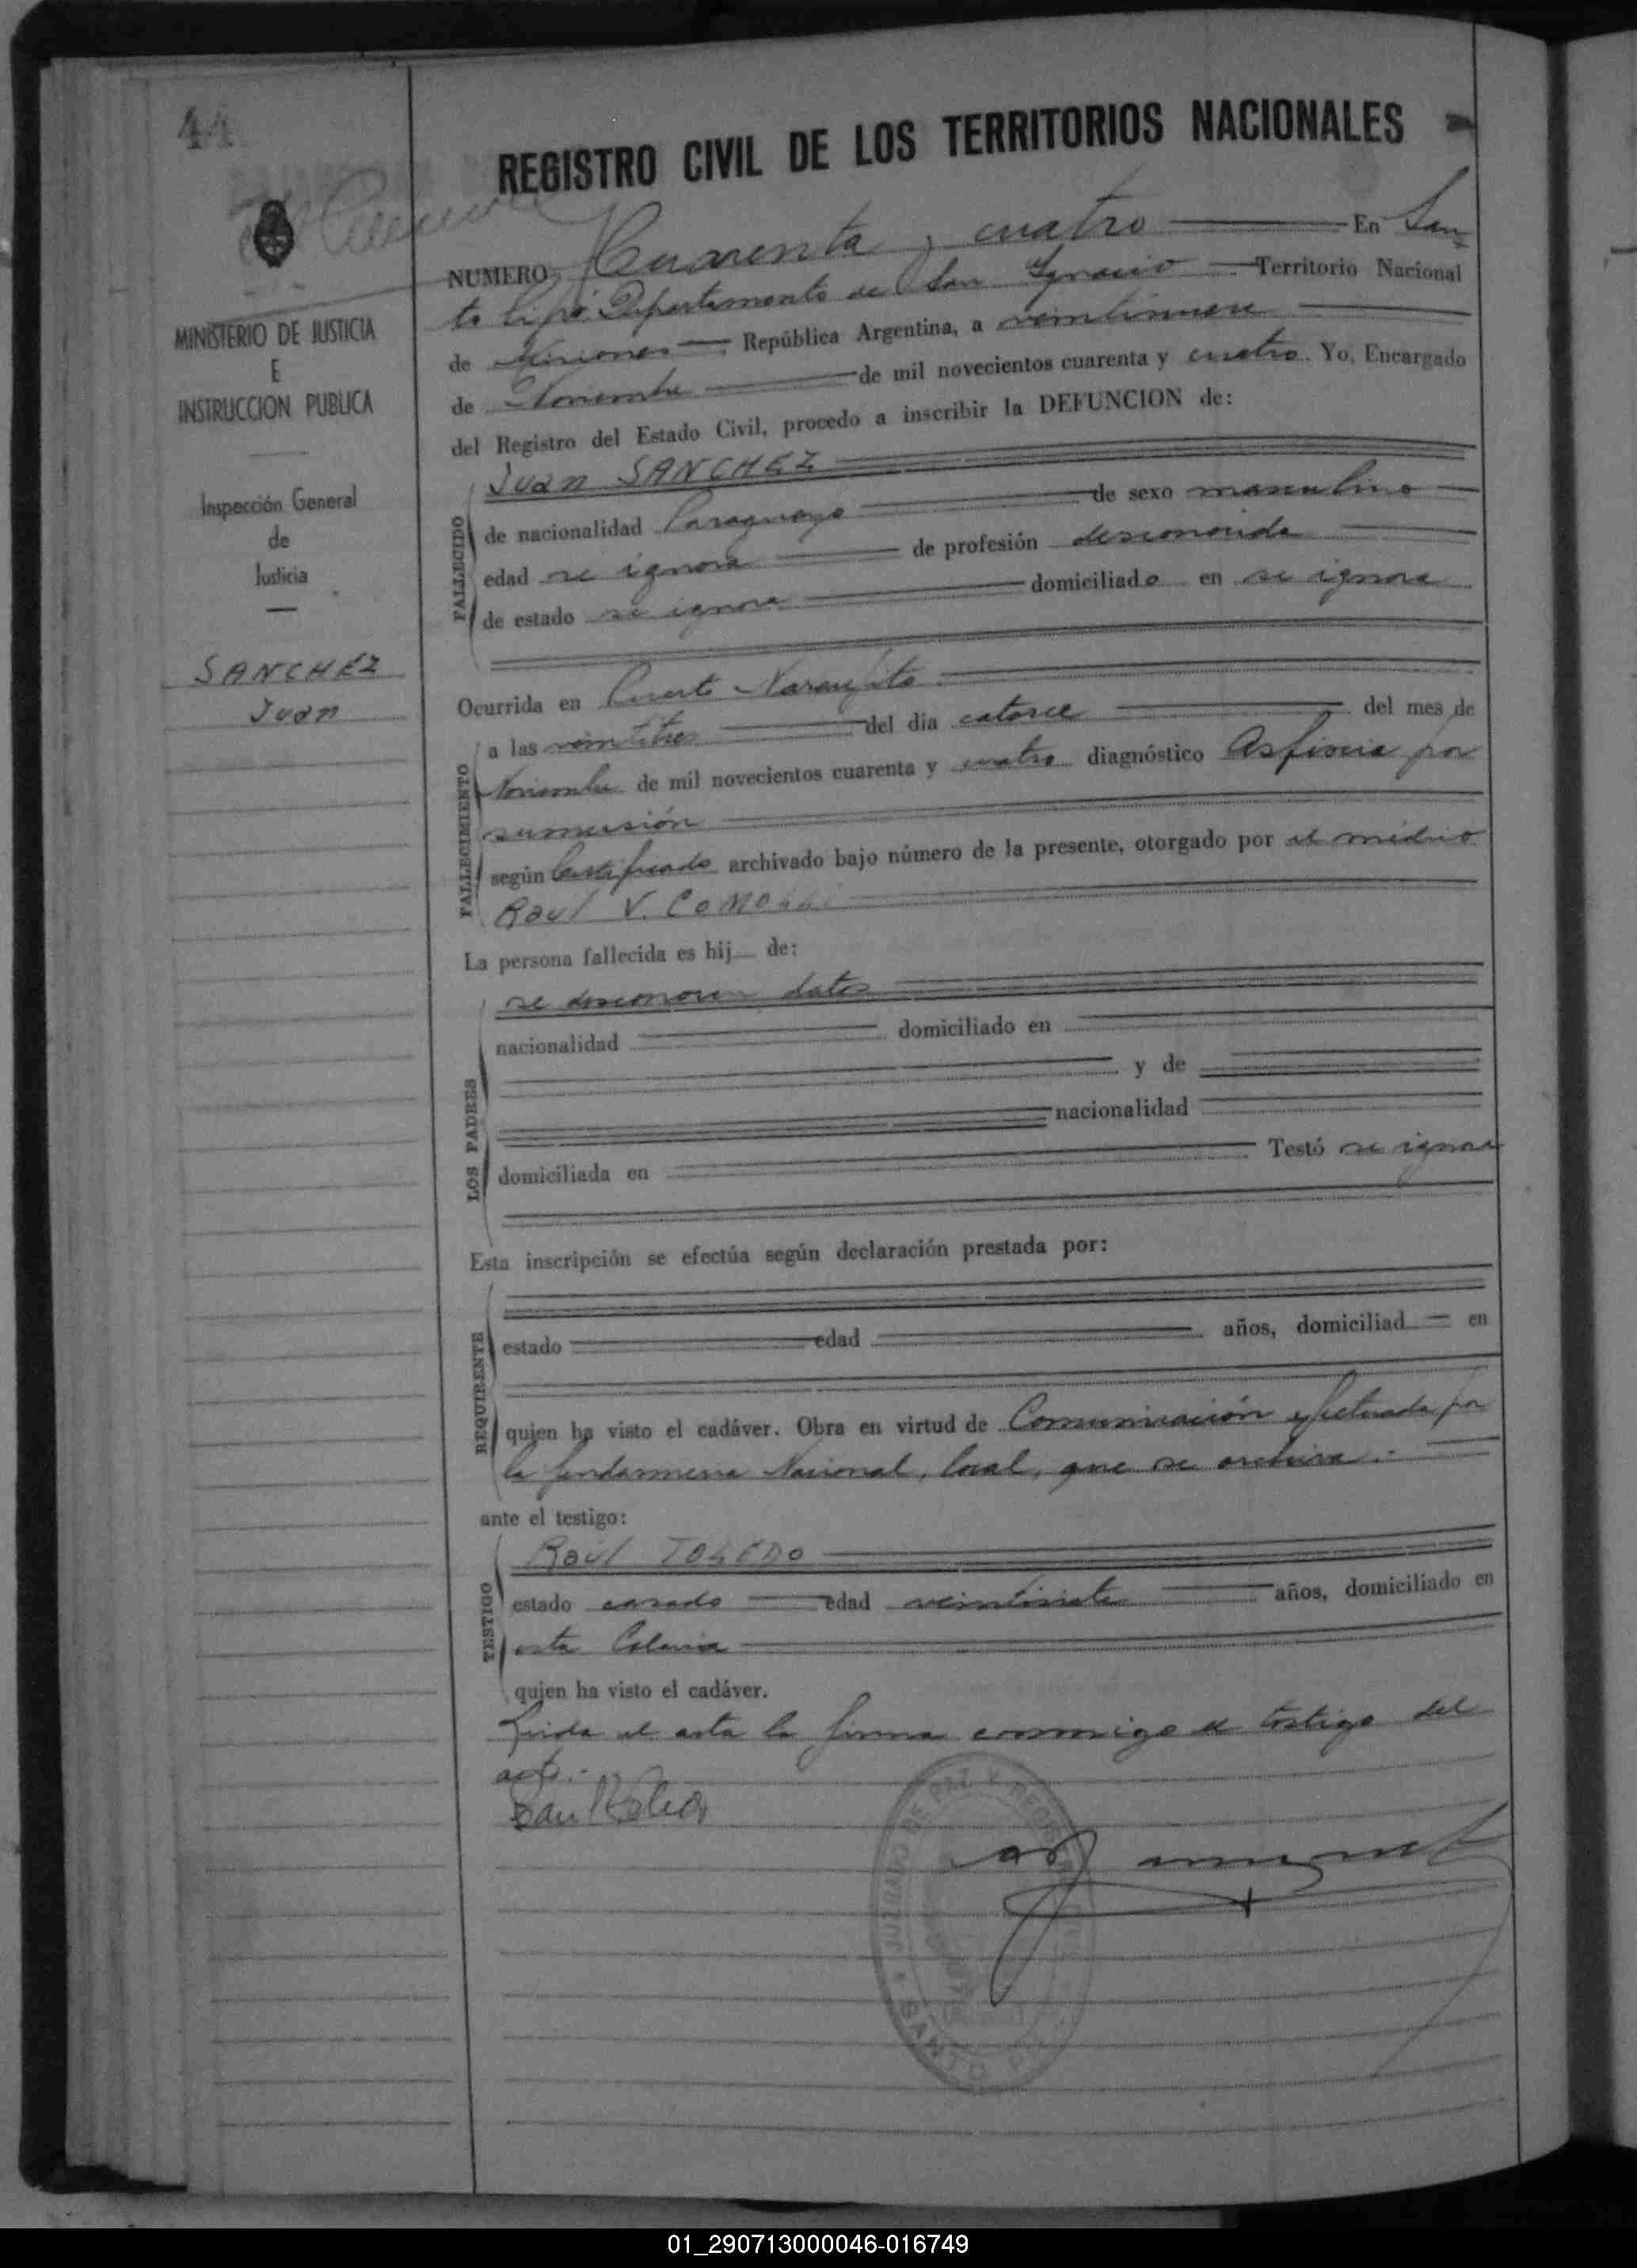 44
REGISTRO CIVIL DE LOS TERRITORIOS NACIONALES
NUMERO Cuarenta y cuatro En San-
to Pipó Departamento de San Ignacio Territorio Nacional
de Misiones República Argentina, a veintinueve
de Noviembre de mil novecientos cuarenta y cuatro. Yo, Encargado
del Registro del Estado Civil, procedo a inscribir la DEFUNCION de:
MINISTERIO DE JUSTICIA
E
INSTRUCCION PUBLICA
Inspección General
de
Justicia
SANCHEZ
Juan
FALLECIDO
Juan SANCHEZ
de nacionalidad Paraguayo de sexo masculino
edad se ignora de profesión desconocida
de estado se ignora domiciliado en se ignora
Ocurrida en Puerto Naranjito
FALLECIMIENTO
a las veintitres del día catorce del mes de
Noviembre de mil novecientos cuarenta y cuatro diagnóstico Asfixia por
sumersión
según Certificado archivado bajo número de la presente, otorgado por el médico
Raul V. COMOLLI
La persona fallecida es hij de:
LOS PADRES
se desconocen datos
nacionalidad domiciliado en
y de
nacionalidad
domiciliada en Testó se ignora
Esta inscripción se efectúa según declaración prestada por:
REQUIRENTE
estado edad años, domiciliad en
quien ha visto el cadáver. Obra en virtud de Comunicación efectuada por
la Gendarmeria Nacional, local, que se archiva.-
ante el testigo:
TESTIGO
Raúl TOLEDO
estado casado edad veintisiete años, domiciliado en
esta Colonia
quien ha visto el cadáver.
Leida el acta la firma conmigo el testigo del
acto.-
DE PAZ Y REGISTRO
SANTO
01_290713000046-016749